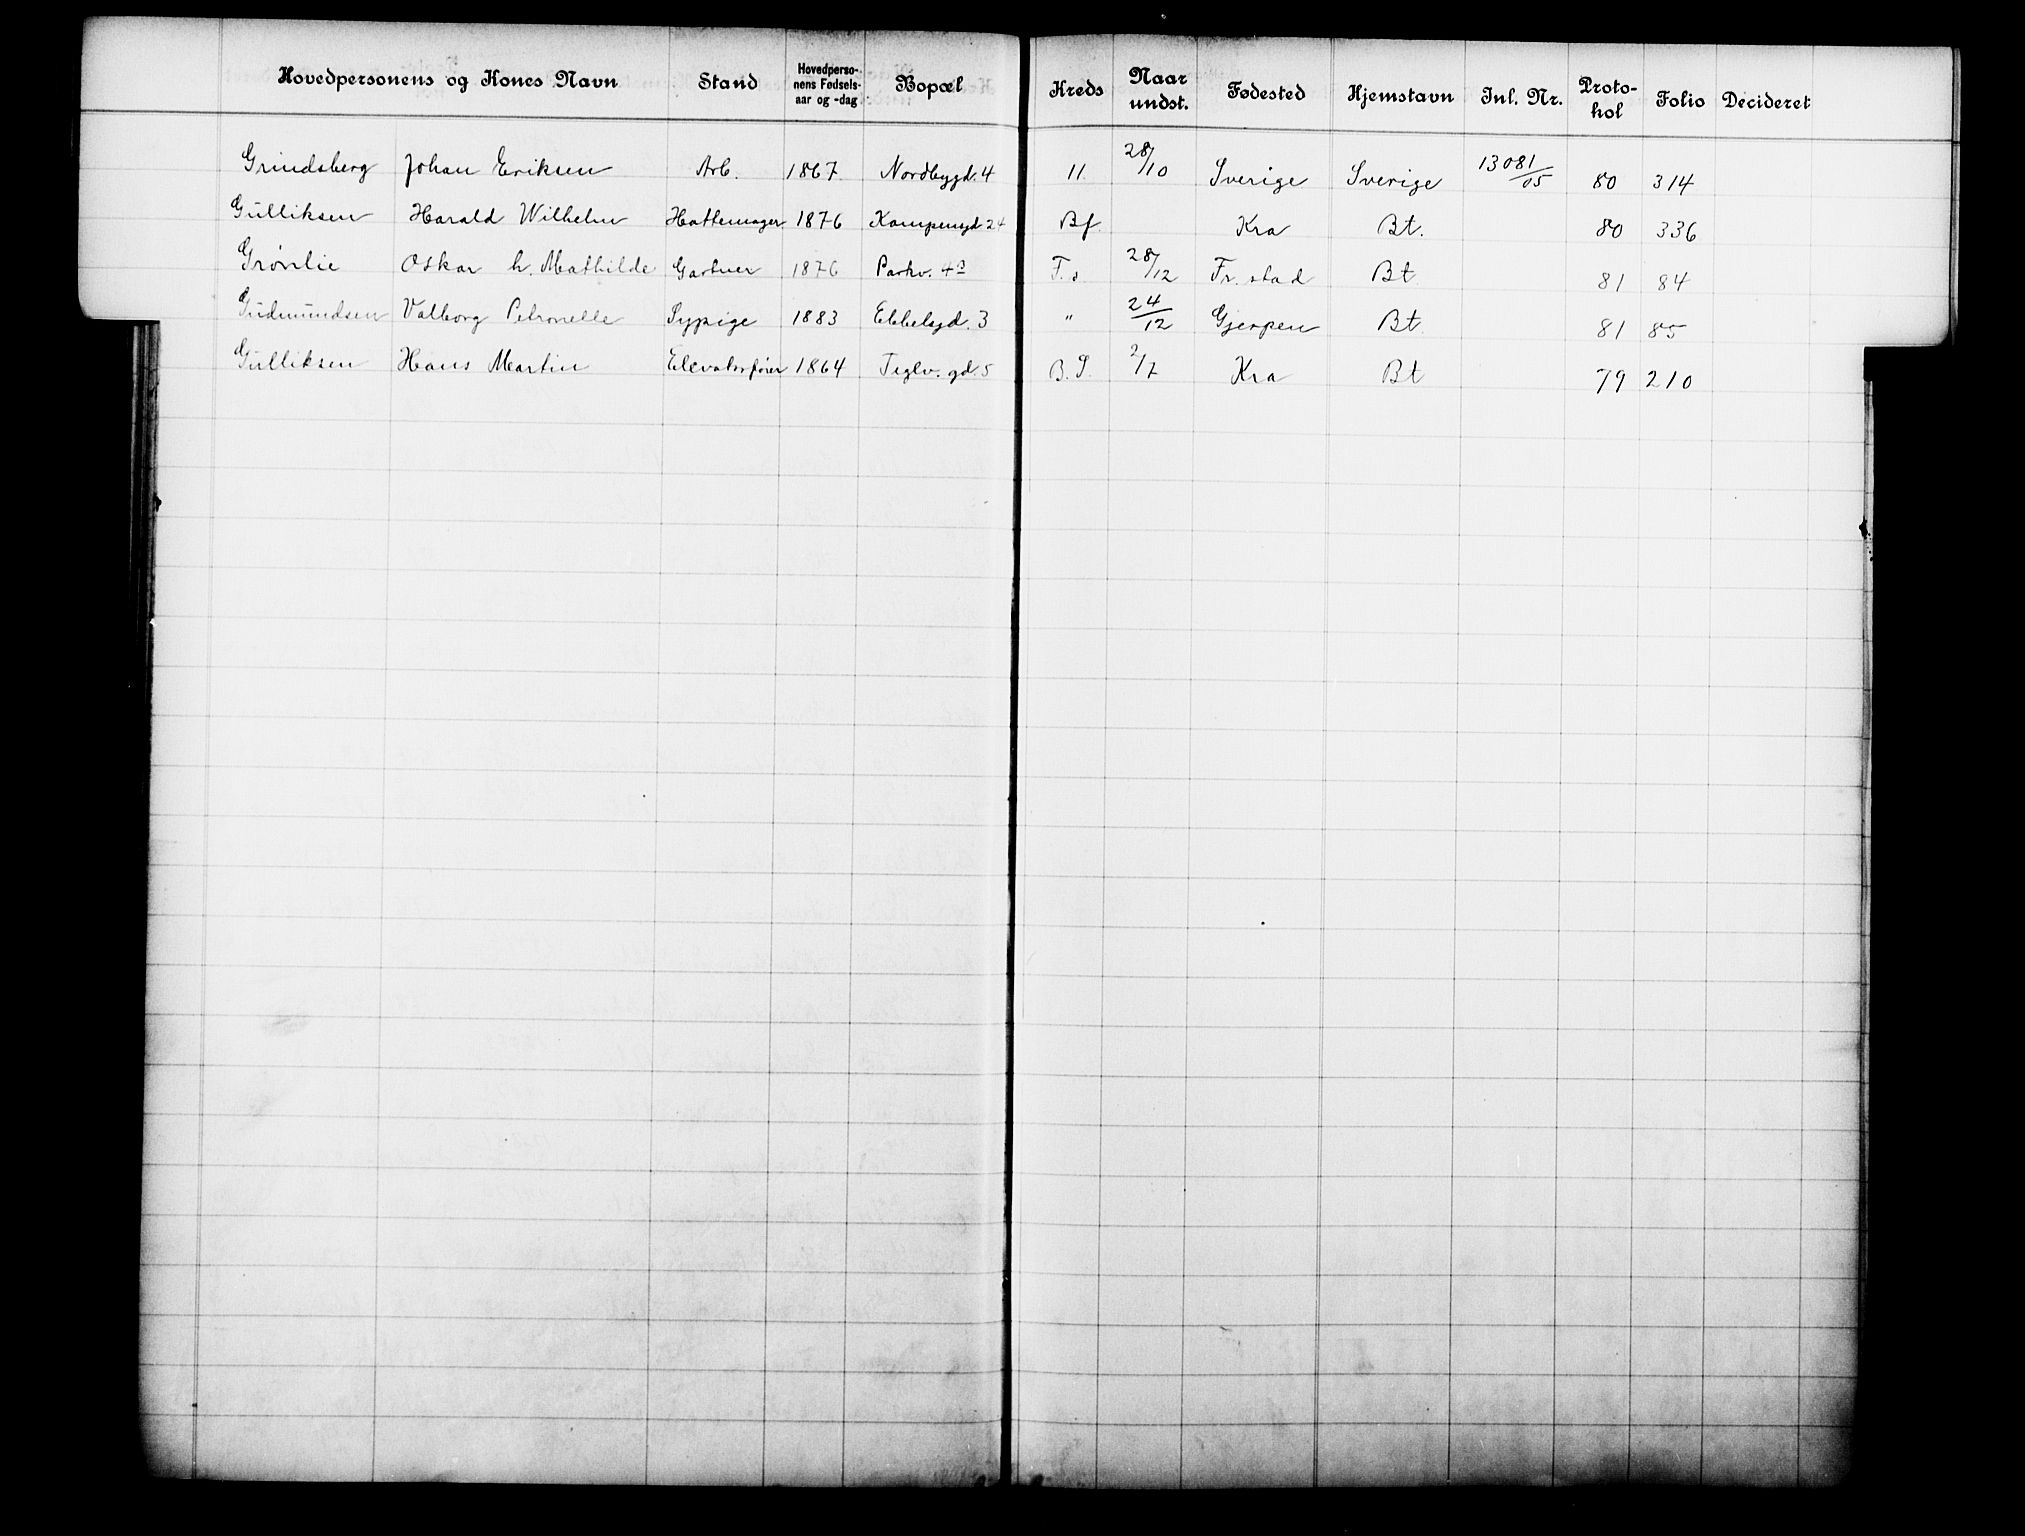 Hovedpersonens og Kones Navn Stand Hovedperso-nens Fødsels-aar og -dag Bopæl Kreds Naar undst. Fødested Hjemstavn Inl. Nr. Proto-kol Folio Decideret
Grindsberg Johan Eriksen Arb. 1867 Nordbygd. 4 11 28/10 Sverige Sverige 13081/05 80 314
Gulliksen Harald Wilhelm Hattemager 1876 Kampensgd 24 Bf. Kra Bt. 80 336
Grønlie Oskar h. Mathilde Gartner 1876 Parkv. 4 F.s 28/12 Fr. stad Bt 81 84
Gudmundsen Valborg Petronelle Sypige 1883 Ebbelsgd. 3 " 24/12 Gjerpen Bt. 81 85
Gulliksen Hans Martin Elevatorfører 1864 Teglv. gd. 5 B. S. 2/7 Kra Bt 79 210